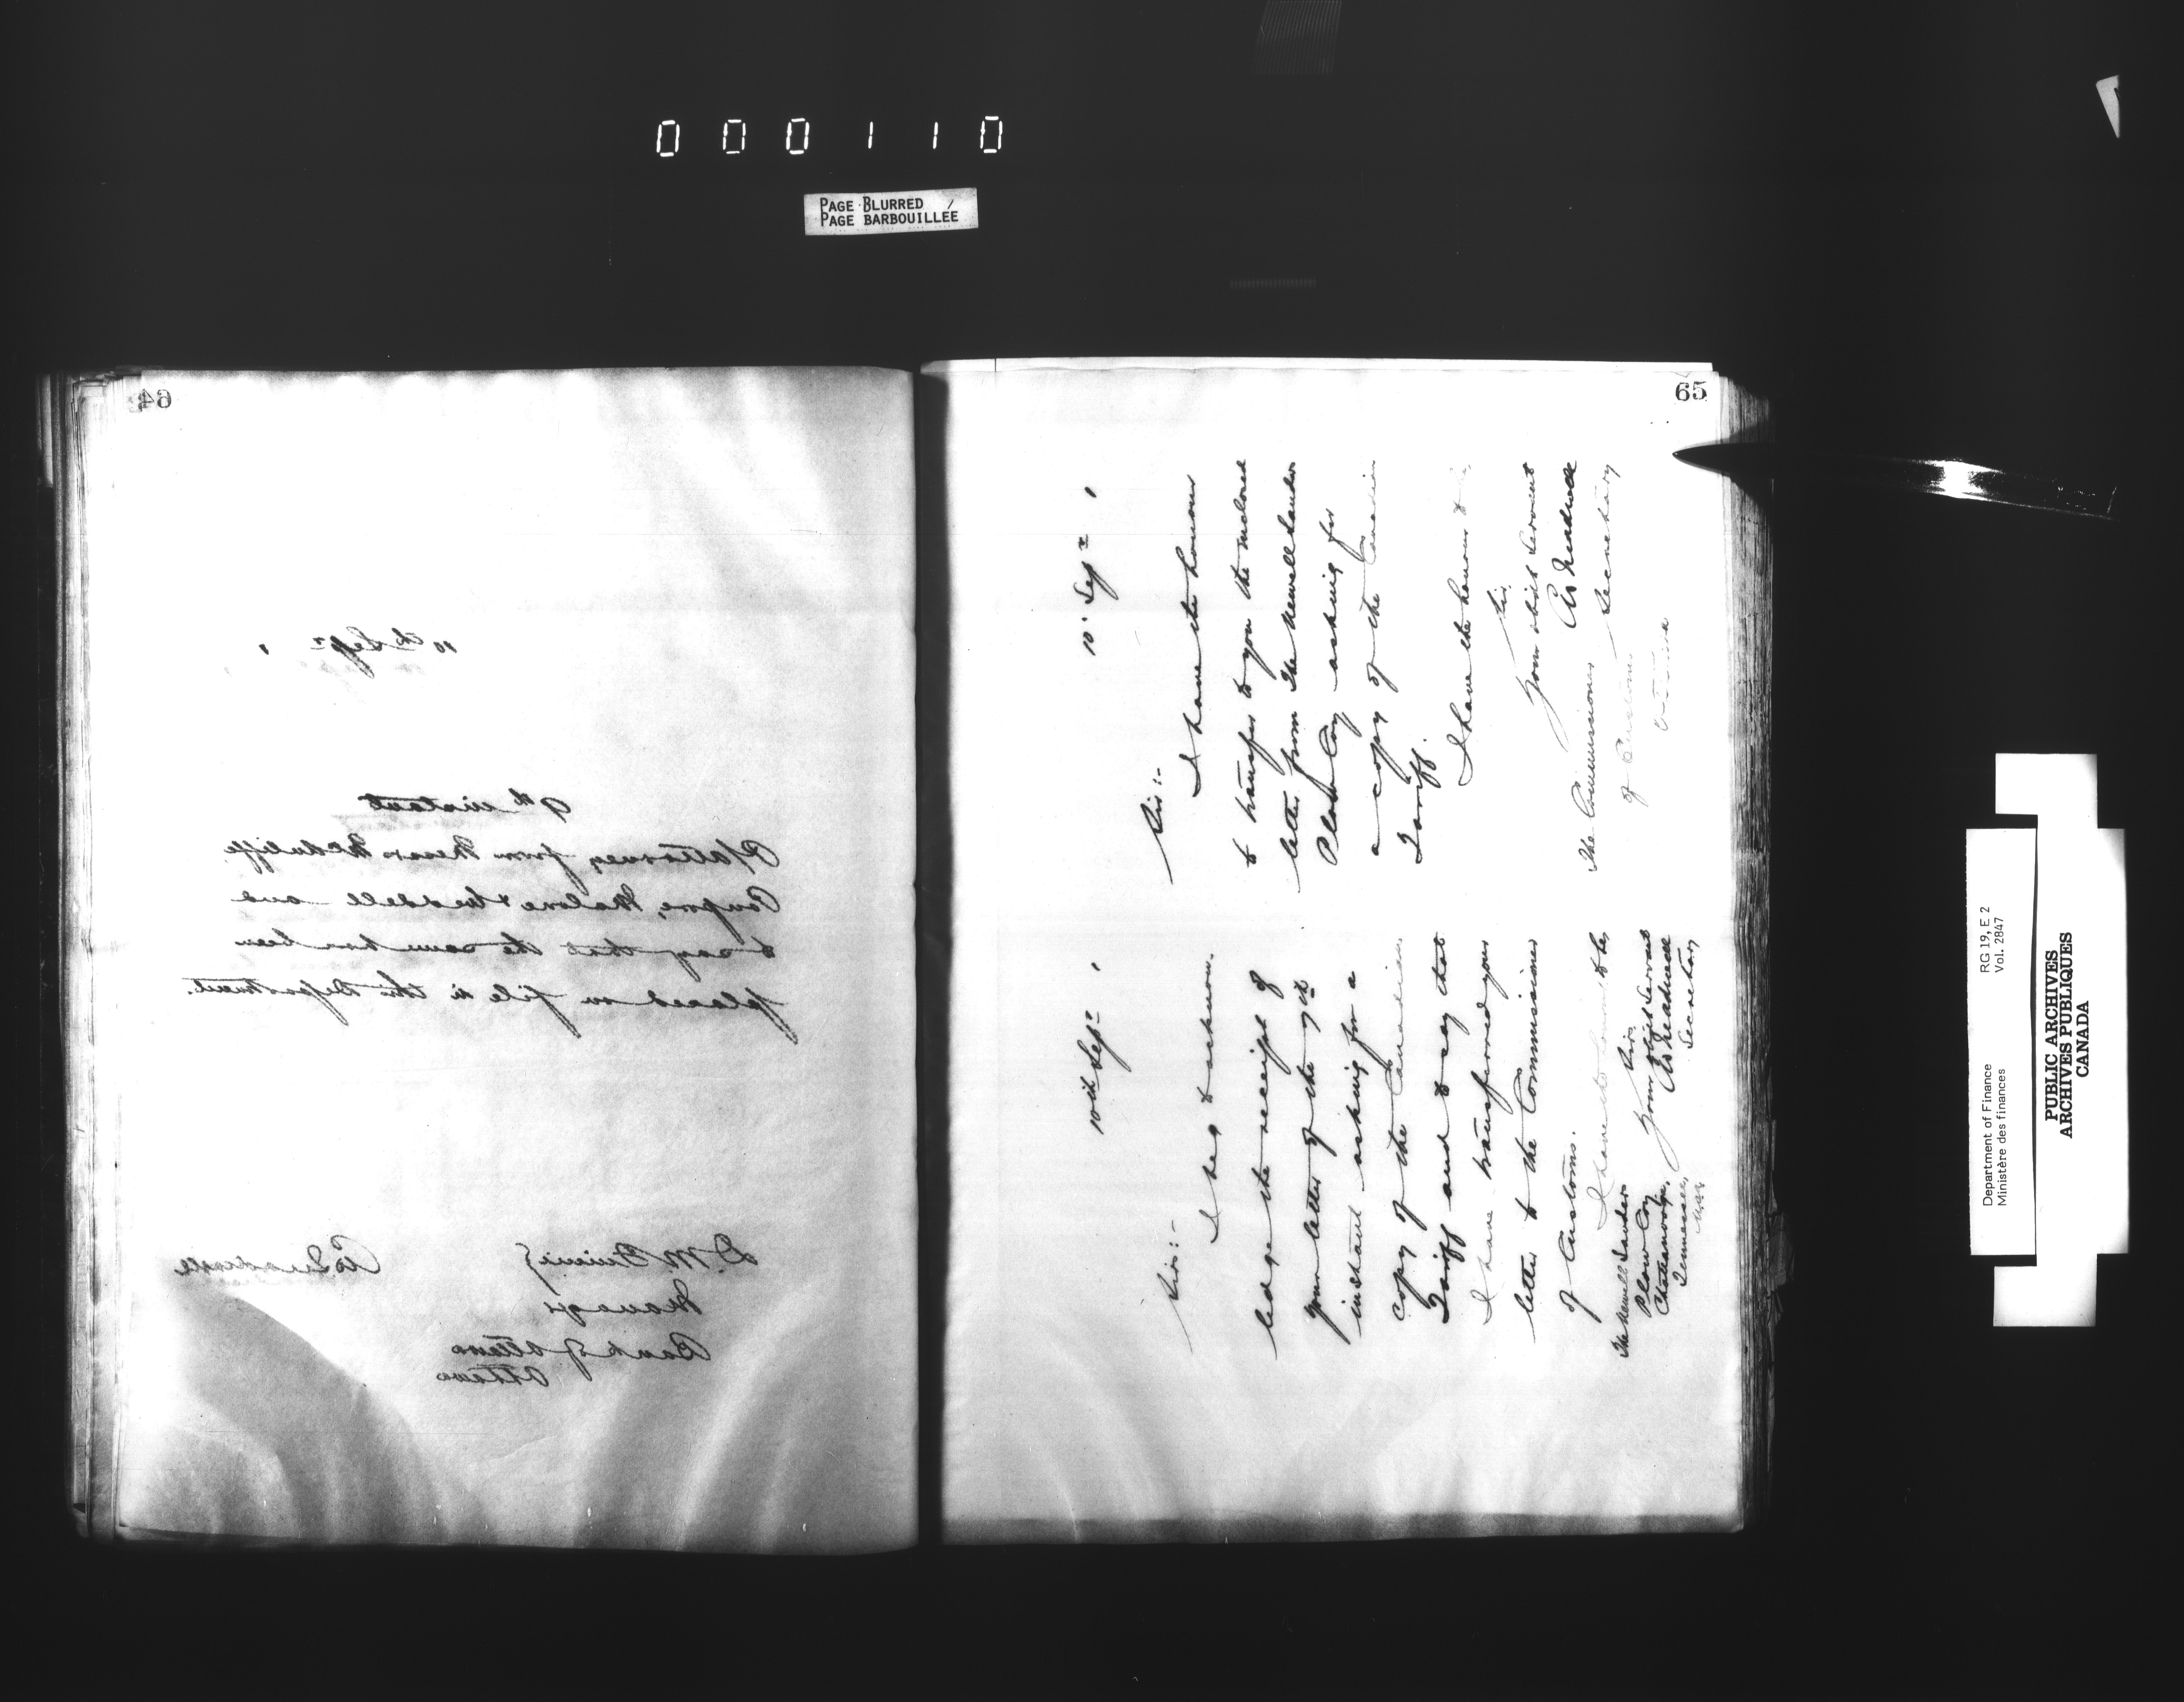 000110
PAGE BLURRED
PAGE BARBOUILLÉE
64
10th Sepr
9th instant
P/attorney from Messrs McAuliffe
Confrere, Malone & Weddell and
to say that the same has been
placed on file in the Department.
D. M. Finnie
Manager
Bank of Ottawa
Ottawa
65
10th Sepr
Sirs:-
I beg to acknow-
ledge the receipt of
your letter of the 7th
instant asking for a
copy of the Canadian
Tariff and to say that
I have transferred your
letter to the Commissioner
of Customs.
I have the honour to be,
Sirs,
Your obdt Servant
Secretary
The Newell Sanders
Plow Coy
Chattanooga,
Tennessee,
10th Sepr
Sir:-
I have the honour
to transfer to you the enclosed
letter from The Newell Sanders
Plow Coy asking for
a copy of the Canadian
Tariff.
I have the honour to
Sir,
Your obdt Servant
Secretary
The Commissioner
of Customs
Ottawa
Department of Finance
Ministère des finances
RG 19, E 2
Vol. 2847
PUBLIC ARCHIVES
ARCHIVES PUBLIQUES
CANADA